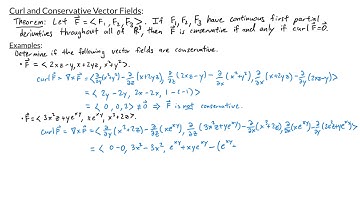 Curl and Conservative Vector Fields:
Theorem: Let F = <F₁, F₂, F₃>. If F₁, F₂, F₃ have continuous first partial
derivatives throughout all of ℝ³, then F is conservative if and only if curl F = 0.
Examples:
Determine if the following vector fields are conservative.
• F = <2x-y, x+2yz, x²+y²>.
curl F = ∇×F = <∂/∂y (x²+y²) - ∂/∂z (x+2yz), ∂/∂z (2x-y) - ∂/∂x (x²+y²), ∂/∂x (x+2yz) - ∂/∂y (2x-y)>
= <2y-2y, 2x-2x, 1-(-1)>
= <0, 0, 2> ≠ 0 ⇒ F is not conservative.
• F = <3x²z+ye^{xy}, xe^{xy}, x³+2z>.
curl F = ∇×F = <∂/∂y (x³+2z) - ∂/∂z (xe^{xy}), ∂/∂z (3x²z+ye^{xy}) - ∂/∂x (x³+2z), ∂/∂x (xe^{xy}) - ∂/∂y (3x²z+ye^{xy})>
= <0-0, 3x²-3x², e^{xy}+xye^{xy}-(e^{xy}+